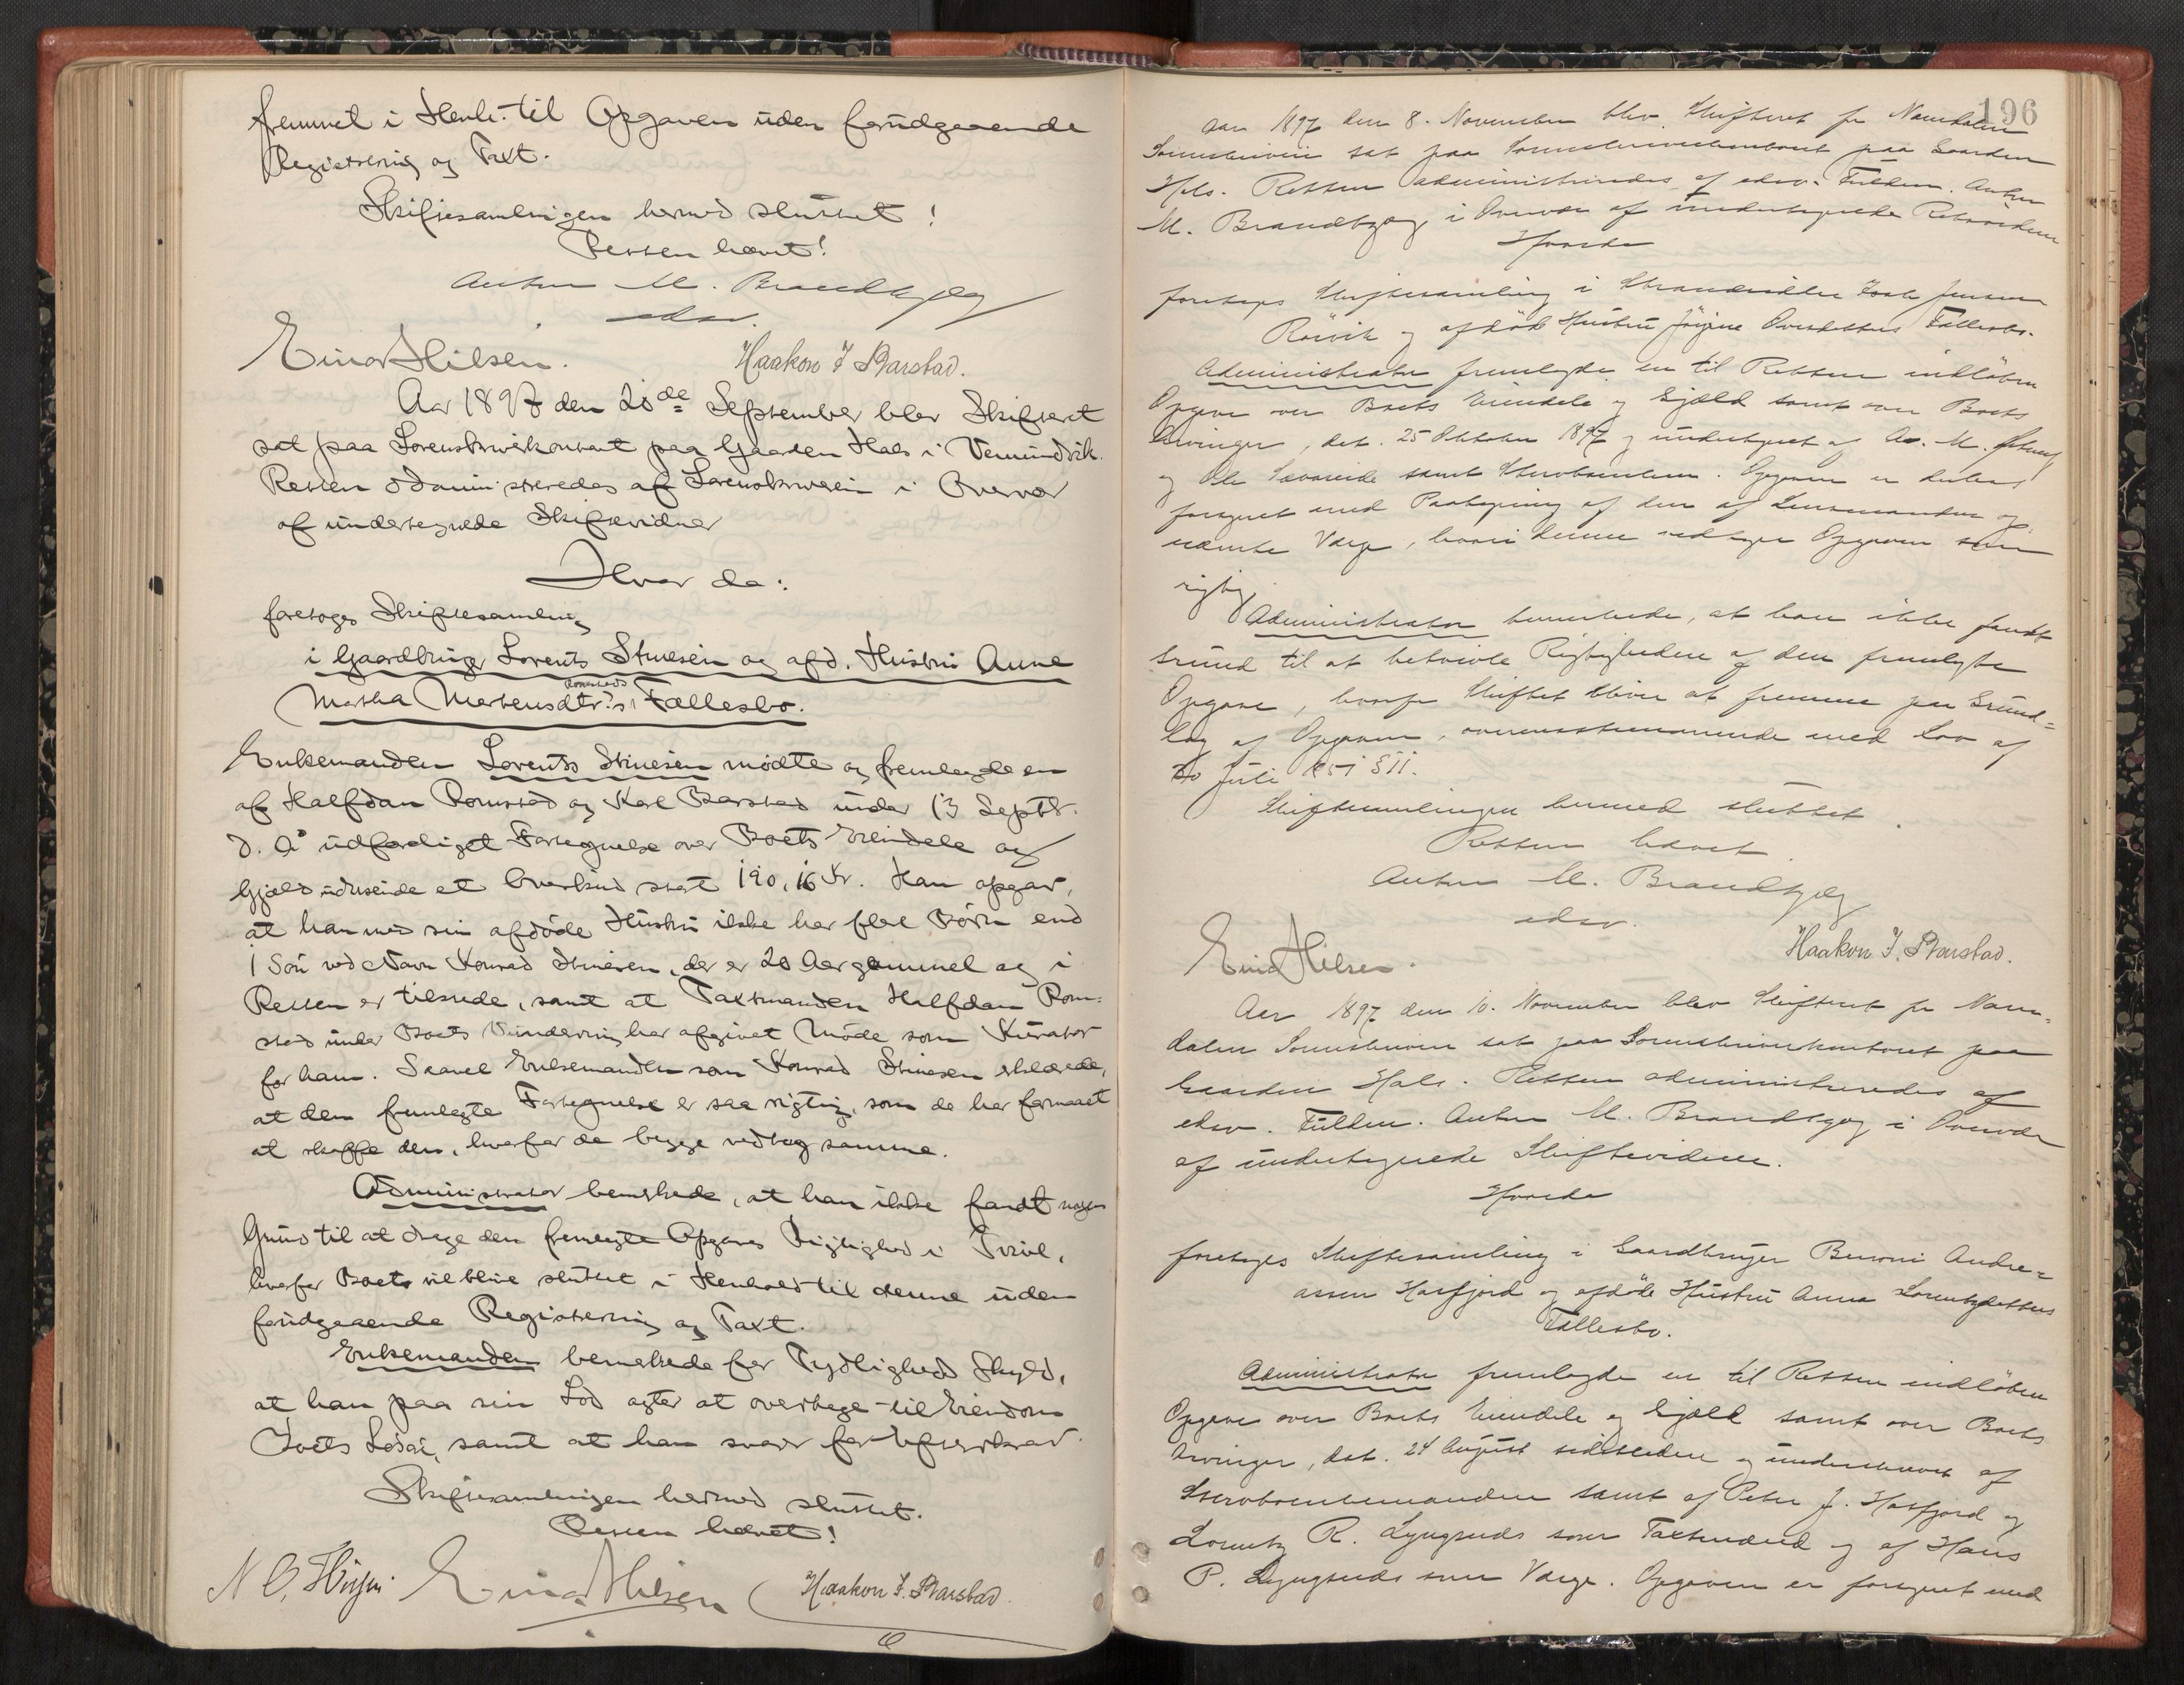 fremmet i Henh. til Opgaven uden forudgaaende
Registrering og Taxt.
Skiftesamlingen hermed sluttet!
Retten hævet!
Anton M. Brandtzæg
edsv.
Einar Hilsen.
Haakon J Barstad.
Aar 1897 den 20de September blev Skifteret
sat paa Sorenskriverkontoret paa Gaarden Hals i Vemundvik.
Retten administreredes af Sorenskriveren i Overvær
af undertegnede Skiftevidner
Hvor da:
foretoges Skiftesamling
i Gaardbruger Lorents Stinesen og afd. Hustru Anne
Romstads
Martha Mortensdtr.s Fællesbo.
Enkemanden Lorents Stinesen mødte og fremlagde en
af Halfdan Romstad og Karl Barstad under 13 Septbr.
d. A. udfærdiget Fortegnelse over Boets Eiendele og
Gjæld udvisende et Overskud stort 190,16 Kr. Han opgav,
at han med sin afdøde Hustru ikke har flere Børn end
1 Søn ved Navn Konrad Stinesen, der er 20 Aar gammel og i
Retten er tilstede, samt at Taxtmanden Halfdan Rom-
stad under Boets Vurdering har afgivet Møde som Kurator
for ham. Saavel Enkemanden som Konrad Stinesen erklærede,
at den fremlagte Fortegnelse er saa rigtig, som de har formaaet
at skaffe den, hvorfor de begge vedtog samme.
Administrator bemærkede, at han ikke fandt nogen
Grund til at drage den fremlagte Opgaves Rigtighed i Tvivl,
hvorfor Boets vil blive sluttet i Henhold til denne uden
forudgaaende Registrering og Taxt.
Enkemanden bemærkede for Tydligheds Skyld,
at han paa sin Lod agter at overtage til Eiendom
Boets Løsøre, samt at han svarer for Efterkrav.
Skiftesamlingen hermed sluttet.
Retten hævet!
Einar Hilsen
Haakon J. Barstad.
196
Aar 1897 den 8. November blev Skifteret for Namdalen
Sorenskriveri sat paa Sorenskriverkontoret paa Gaarden
Hals. Retten administreredes af edsv. Fuldm. Anton
M. Brandtzæg i Overvær af undertegnede Retsvidner
Hvorda
foretoges Skiftesamling i Strandsidder Jensen
Rørvik og afdøde Hustru Jørgine Fællesbo.
Administrator fremlagde en til Retten indløben
Opgave over Boets Eiendele og Gjæld samt over Boets
Arvinger, dat. 25 Oktober 1897 og undertegnet af
og Ole samt Sterbo. Opgaven er desuden
forsynet med Paategning af den af Lensmanden op-
nævnte Værge, hvori denne vedtager Opgaven som
rigtig
Administrator bemærkede, at han ikke fandt
Grund til at betvivle Rigtigheden af den fremlagte
Opgave, hvorfor Skiftet bliver at fremme paa Grund-
lag af Opgaven, overensstemmende med Lov af
30 Juli 1851 § 11.
Skiftesamlingen hermed sluttet.
Retten hævet.
Anton M. Brandtzæg
edsv.
Einar Hilsen.
Haakon J. Barstad.
Aar 1897 den 10. November blev Skifteret for Nam-
dalen Sorenskriveri sat paa Sorenskriverkontoret paa
Gaarden Hals. Retten administreredes af
edsv. Fuldm. Anton M. Brandtzæg i Overvær
af undertegnede Skiftevidner.
Hvorda
foretoges Skiftesamling i Gaardbruger Benoni Andre-
assen Horfjord og afdøde Hustru Anna Lorentzdatters
Fællesbo.
Administrator fremlagde en til Retten indløben
Opgave over Boets Eiendele og Gjæld samt over Boets
Arvinger, dat. 24 August sidstleden og underskrevet af
Sterboenkemanden samt af Peter J. Horfjord og
Lorentz R. Lyngsnes som Taxtmænd og af Hans
P. Lyngsnes som Værge. Opgaven er forsynet med